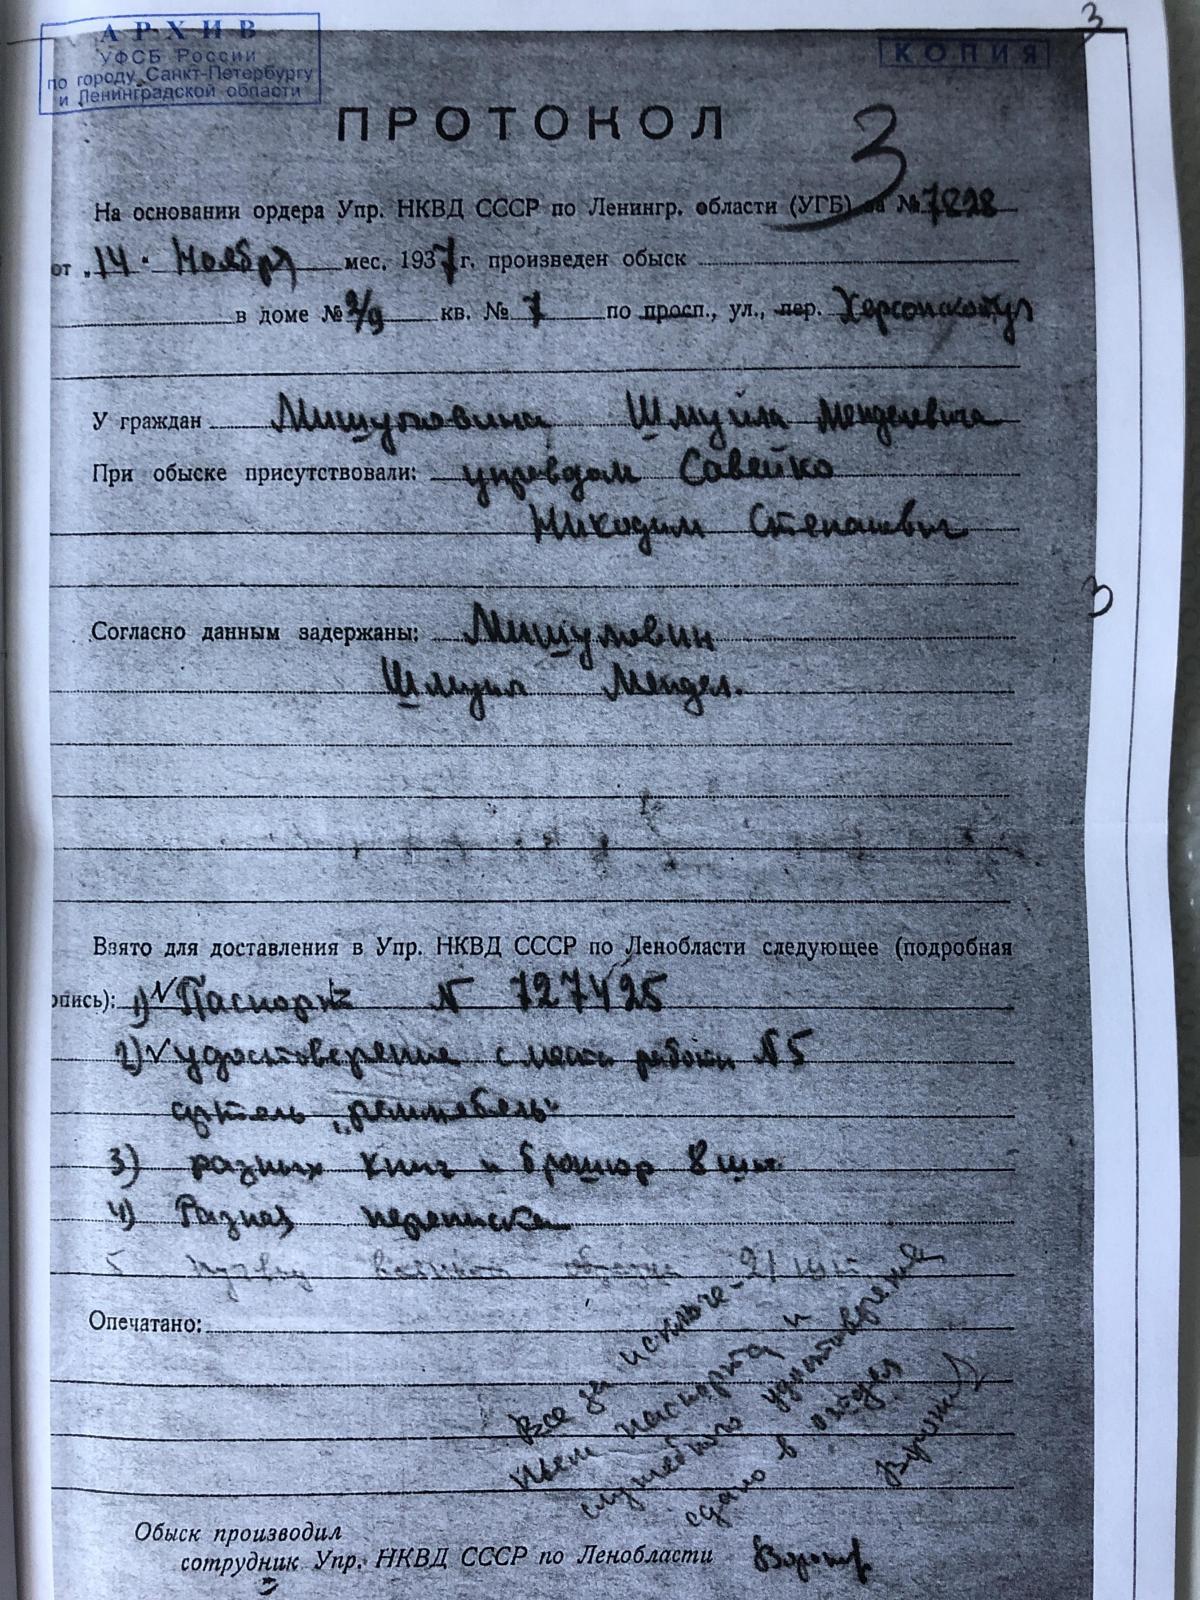 3
АРХИВ
УФСБ России
по городу Санкт-Петербургу
и Ленинградской области
КОПИЯ
ПРОТОКОЛ
3
На основании ордера Упр. НКВД СССР по Ленингр. области (УГБ) за № 7828
от „14" Ноября мес. 1937 г. произведен обыск
в доме № 2/9 кв. № 7 по просп., ул., пер. Херсонской ул
У граждан Мишуловина Шмуйла Менделевича
При обыске присутствовали: управдом Савейко
Никодим Степанович
3
Согласно данным задержаны: Мишуловин
Шмуил Мендел.
Взято для доставления в Упр. НКВД СССР по Ленобласти следующее (подробная
опись): 1) Паспорт N 727425
2) удостоверение с места работы N 5
артель „реммебель"
3) разных книг и брошюр 8 шт.
4) Разная переписка
5 образца 21 шт
Опечатано:
Все за исключе-
нием паспорта и
служебного удостоверения
сдано в отдел
Обыск производил
сотрудник Упр. НКВД СССР по Ленобласти